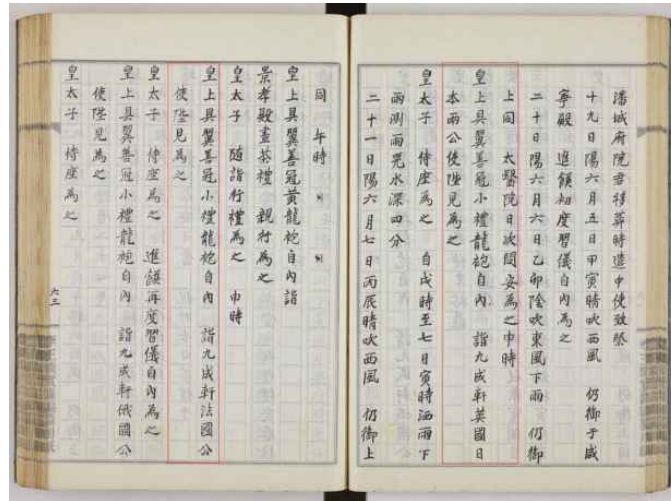 潘城府院君移葬時遣中使致祭
十九日陽六月五日甲寅晴吹西風　仍御于咸
寧殿　進饌初度習儀自內爲之
二十日陽六月六日乙卯陰吹東風下雨　仍御
上同　太醫院日次問安爲之申時
皇上具翼善冠小禮龍袍自內　詣九成軒英國日
本兩公使陛見爲之
皇太子　侍座爲之　自戌時至七日寅時洒雨下
雨測雨器水深四分
二十一日陽六月七日丙辰晴吹西風　仍御上
同　午時
皇上具翼善冠黃龍袍自內詣
景孝殿晝茶禮　親行爲之
皇太子　隨詣行禮爲之　申時
皇上具翼善冠小禮龍袍自內　詣九成軒法國公
使陛見爲之
皇太子　侍座爲之　進饌再度習儀自內爲之
皇上具翼善冠小禮龍袍自內　詣九成軒俄國公
使陛見爲之
皇太子　侍座爲之
六三